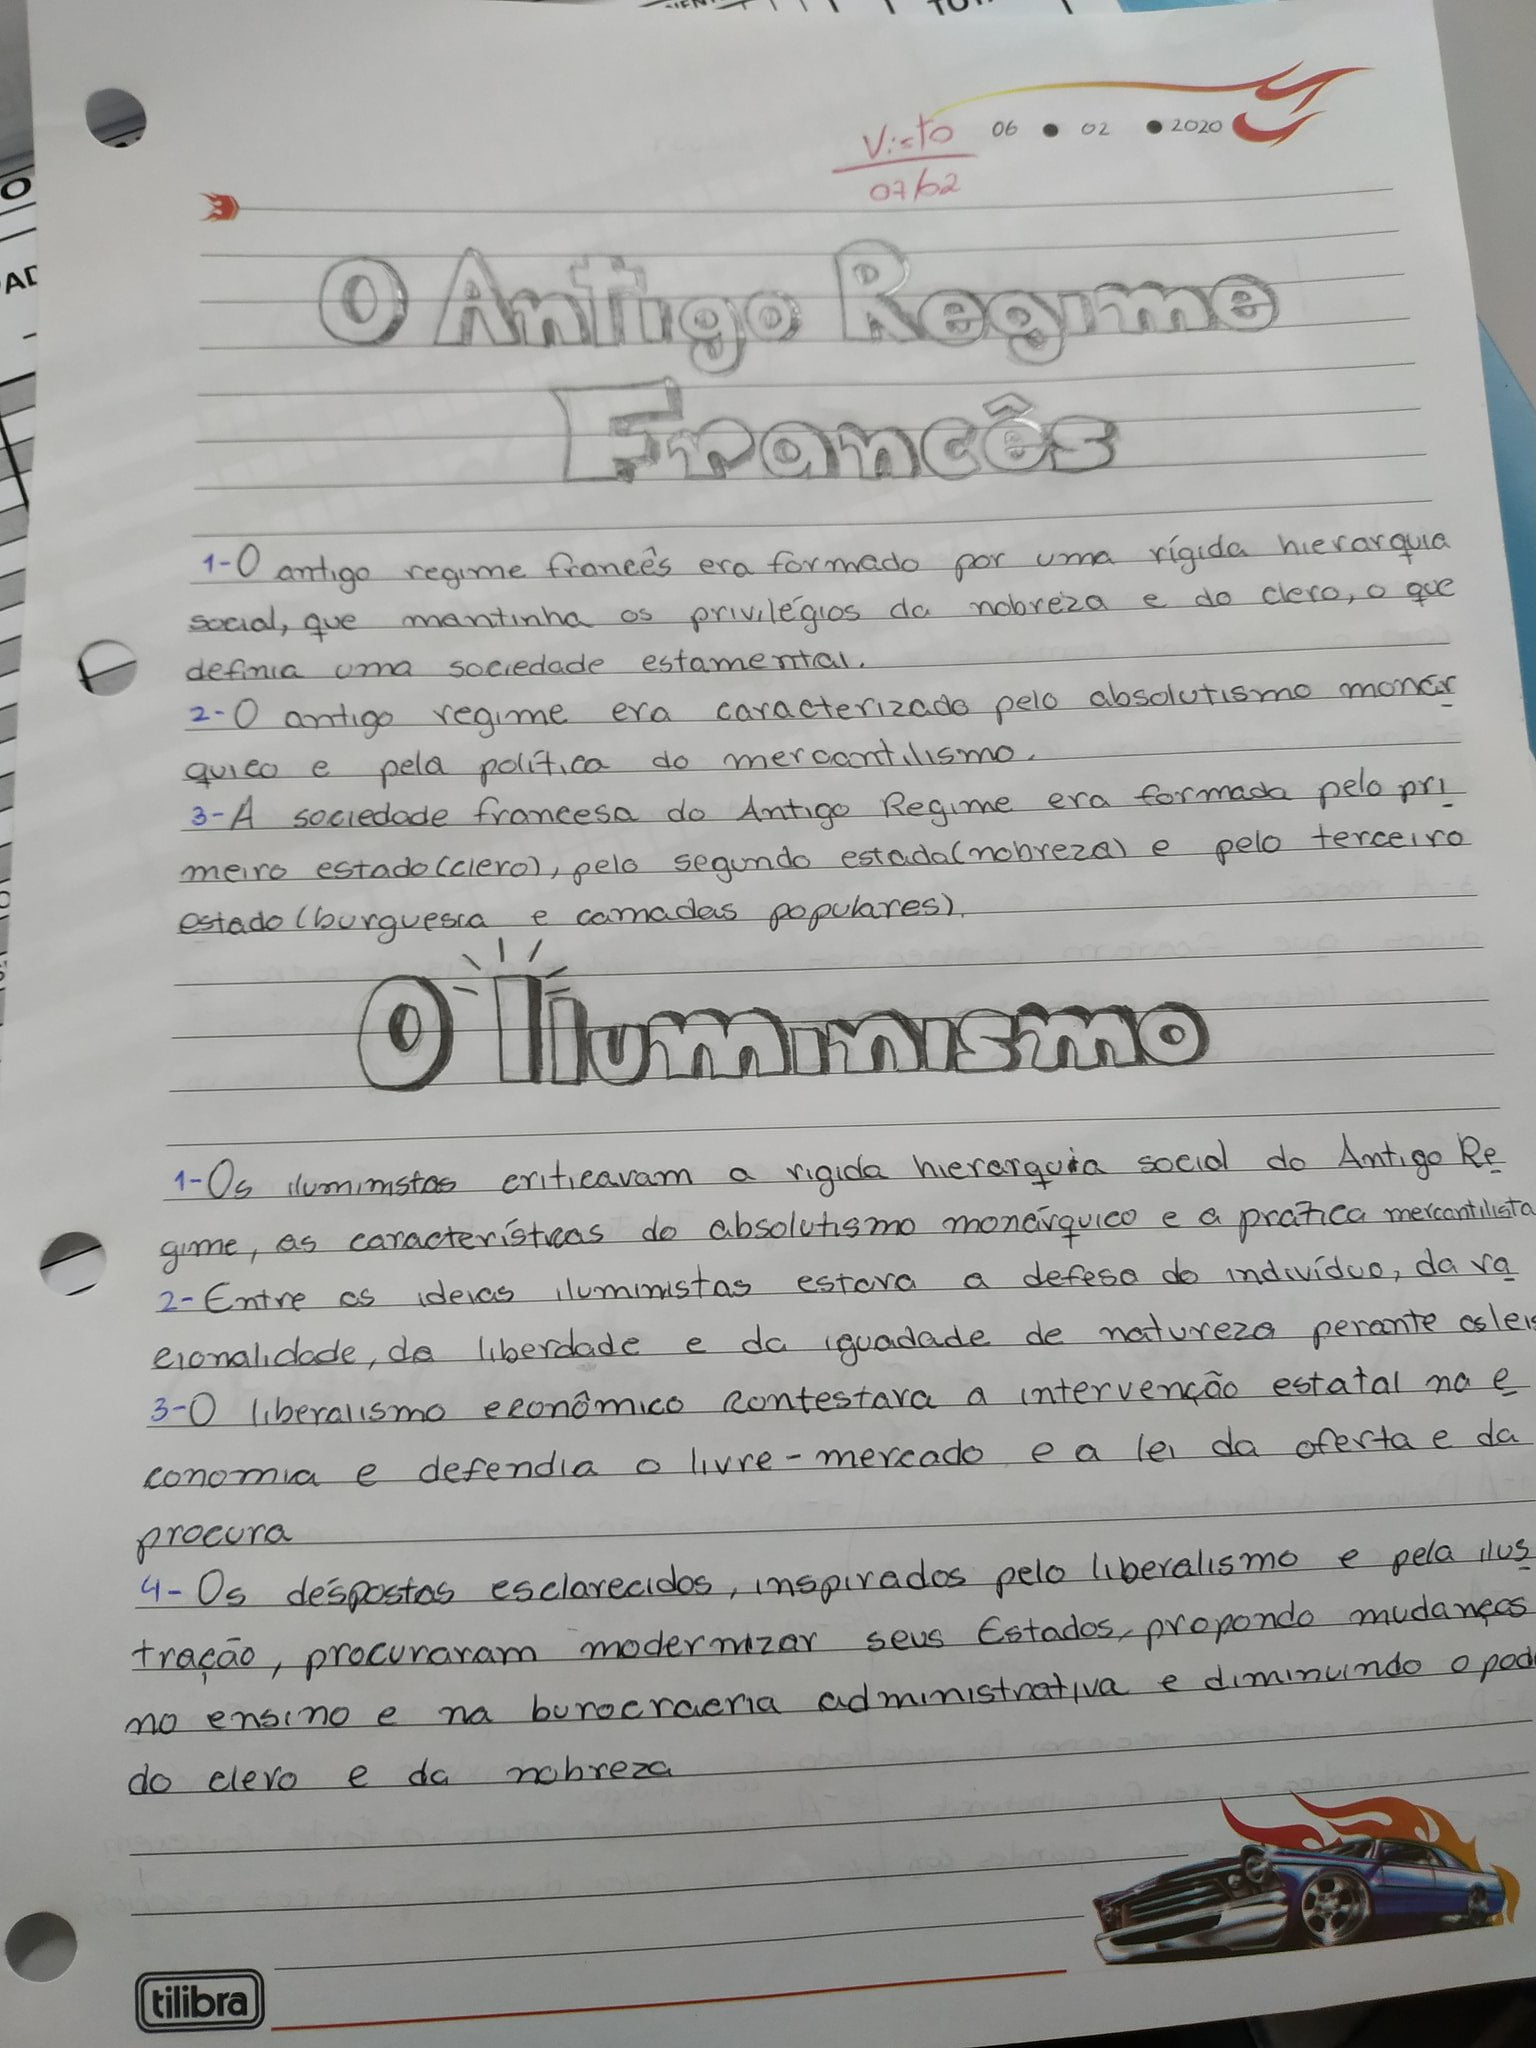 Visto 06 • 02 • 2020
07/02
O Antigo Regime
Francês
1-O antigo regime francês era formado por uma rígida hierarquia
social, que mantinha os privilégios da nobreza e do clero, o que
definia uma sociedade estamental.
2-O antigo regime era caracterizado pelo absolutismo monár
quico e pela política do mercantilismo.
3-A sociedade francesa do Antigo Regime era formada pelo pri
meiro estado(clero), pelo segundo estado(nobreza) e pelo terceiro
estado(burguesia e camadas populares).
O Iluminismo
1-Os iluministas criticavam a rigida hierarquia social do Antigo Re
gime, as características do absolutismo monárquico e a pratica mercantilista
2-Entre as ideias iluministas estava a defesa do indivíduo, da ra
cionalidade, da liberdade e da iguadade de natureza perante as leis
3-O liberalismo econômico contestava a intervenção estatal na e
conomia e defendia o livre-mercado e a lei da oferta e da
procura
4-Os déspostas esclarecidos, inspirados pelo liberalismo e pela ilus
tração, procuraram modernizar seus Estados, propondo mudanças
no ensino e na burocraeria administrativa e diminuindo o pod
do clero e da nobreza
tilibra